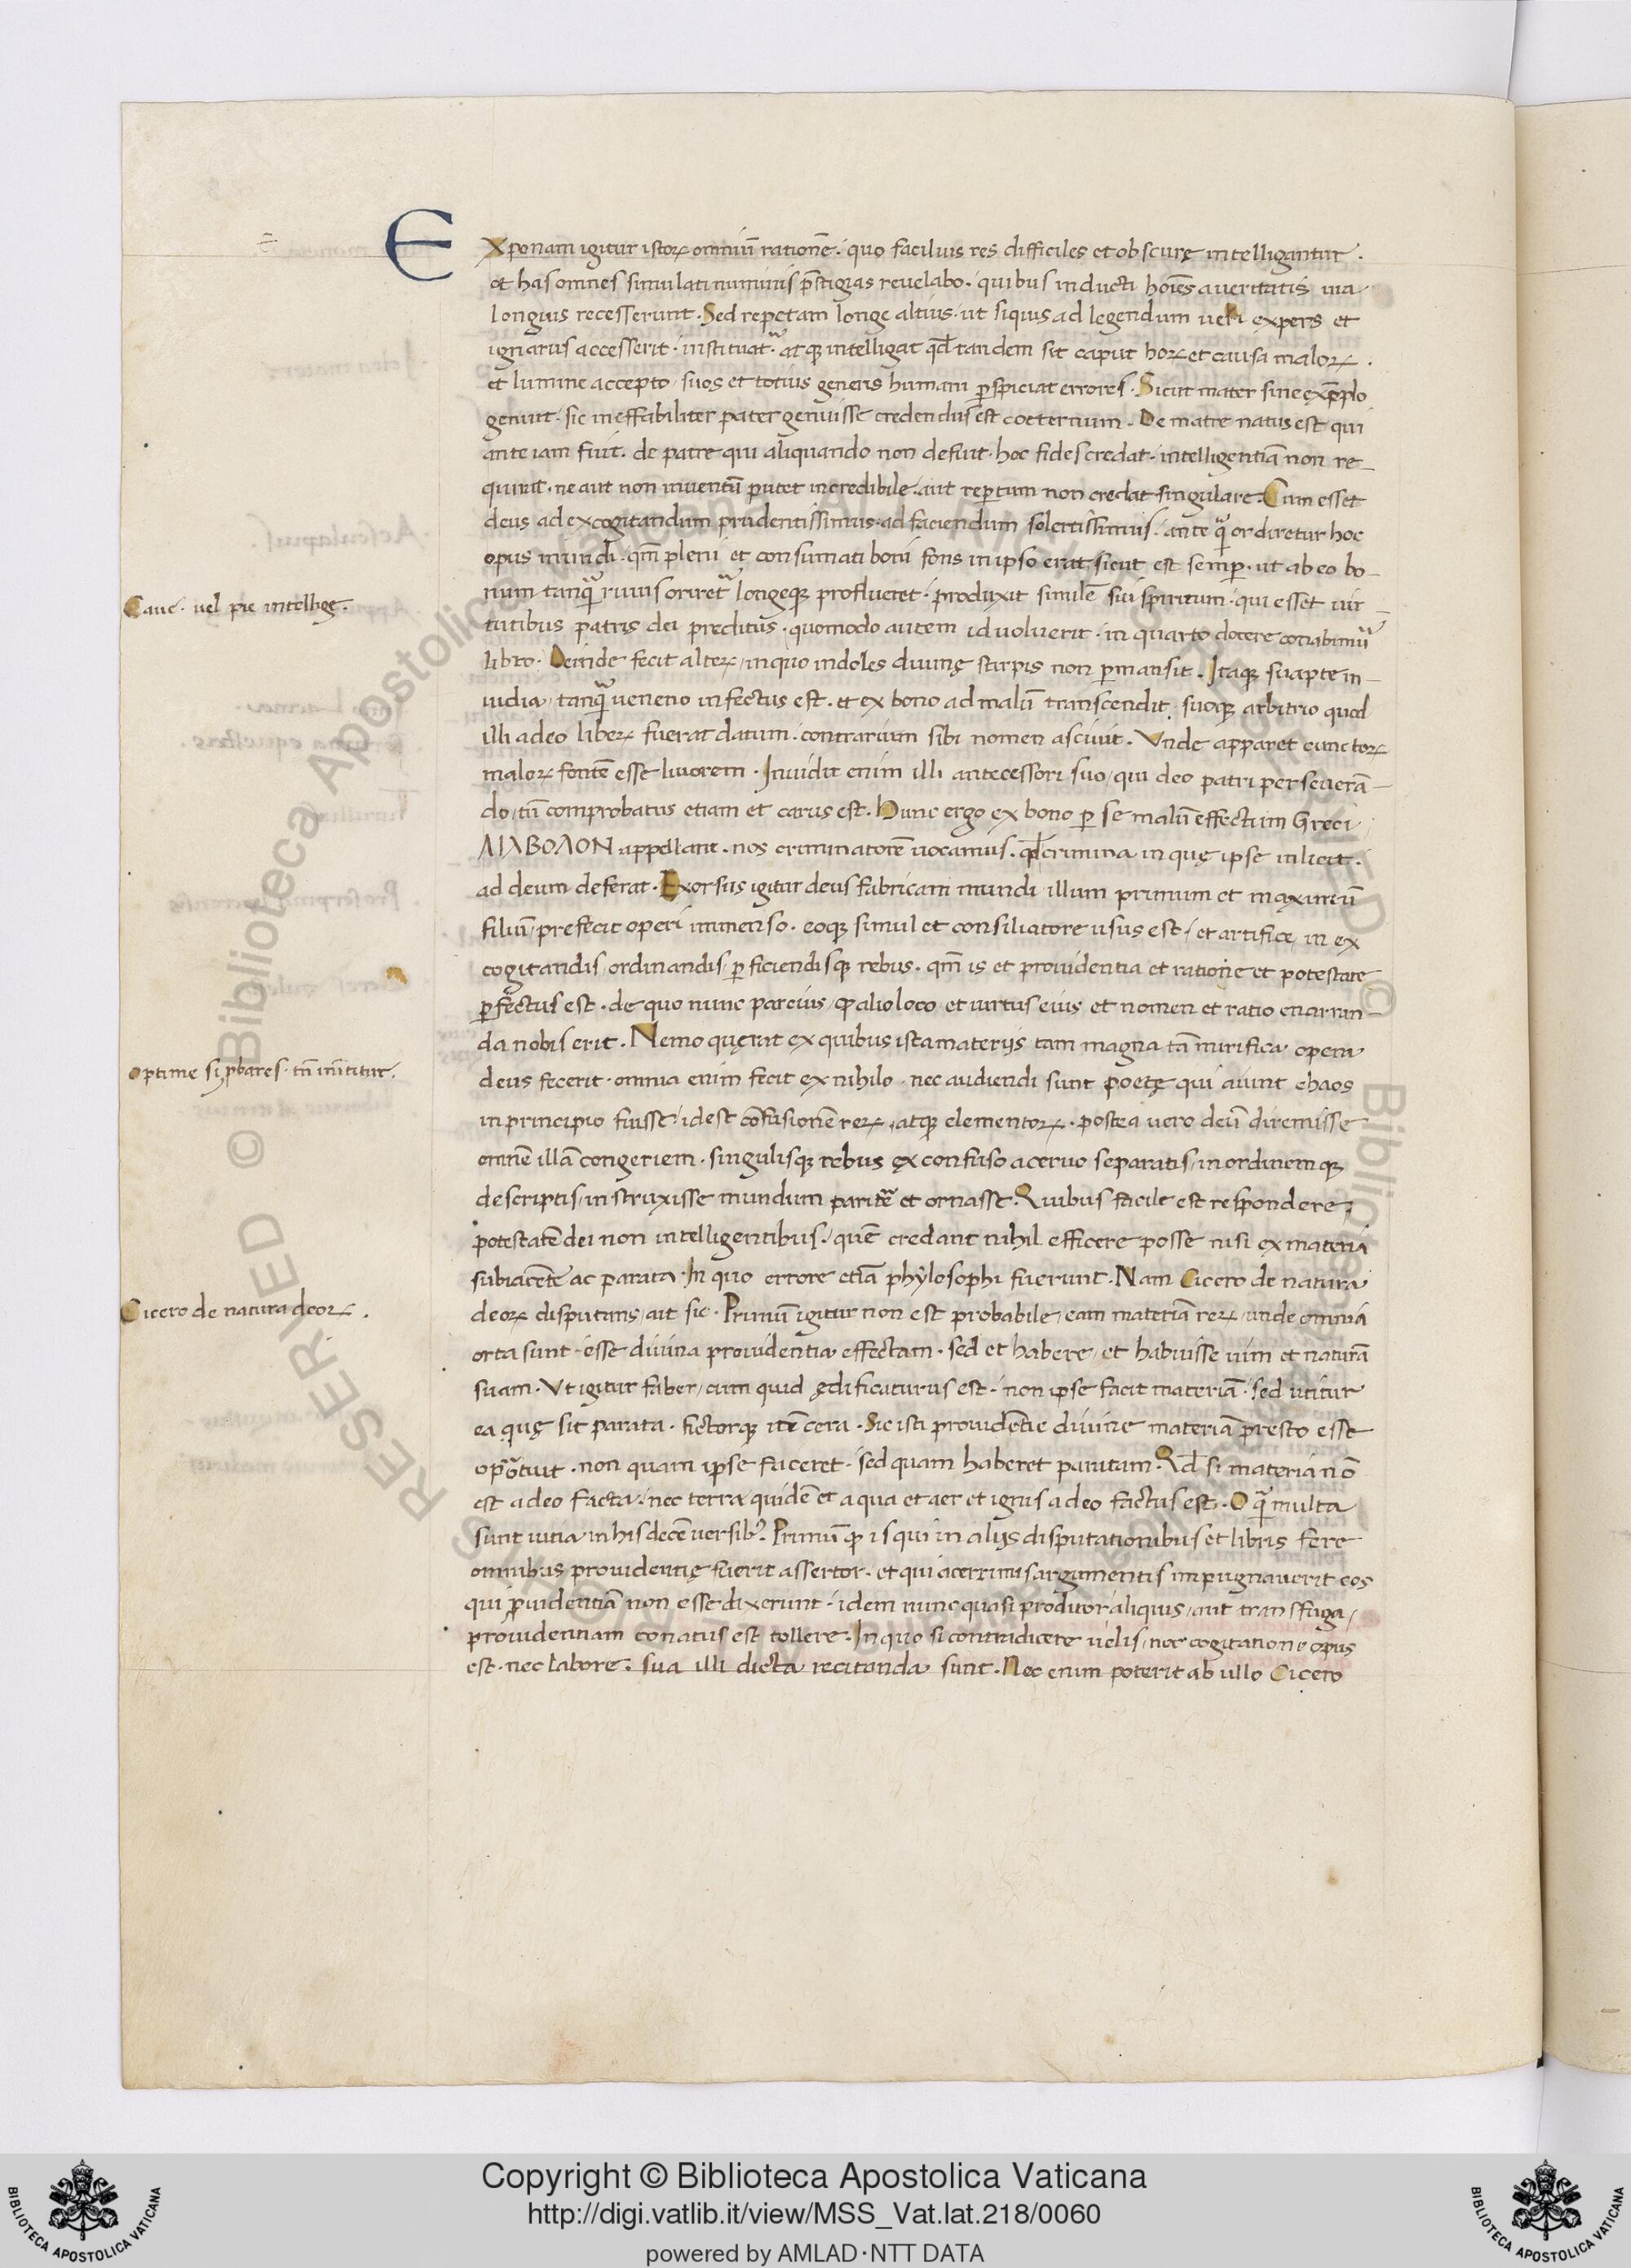 Exponam igitur istoꝝ omniū rationē. quo facilius res difficiles et obscurę intelligantur.
et has omnes simulati numinis p̄stigias reuelabo. quibus inducti hoīes a ueritatis uia
longius recesserunt. Sed repetam longe altius. ut siquis ad legendum ueri expers et
ignarus accesserit. instituat᷑. atqꝫ intelligat qđ tandem sit caput hoꝝ et causa maloꝝ.
et lumine accepto suos et totius generis humani ꝑspiciat errores. Sicut mater sine exēplo
genuit. sic ineffabiliter pater genuisse credendus est coeternum. De matre natus est qui
ante iam fuit. de patre qui aliquando non defuit. hoc fides credat. intelligentiā non re-
quirat. ne aut non inuentū putet incredibile. aut repertum non credat singulare. Cum esset
deus ad excogitandum prudentissimus. ad faciendum solertissimus. ante qͣ̄ ordiretur hoc
opus mundi. qm̄ pleni et consumati boni fons in ipso erat sicut est semꝑ. ut ab eo bo-
num tanqͣ̄ riuus oriret᷑ longeqꝫ proflueret. produxit similē sui spiritum. qui esset uir-
tutibus patris dei preditus. quomodo autem id uoluerit. in quarto docere conabimur᷑
libro. Deinde fecit alteꝝ in quo indoles diuinę stirpis non ꝑmansit. Itaqꝫ suapte in-
uidia tanqͣ̄ ueneno infectus est. et ex bono ad malū transcendit. suoqꝫ arbitrio quod
illi a deo libeꝝ fuerat datum. contrarium sibi nomen asciuit. Vnde apparet cunctoꝝ
maloꝝ fontē esse liuorem. Inuidit enim illi antecessori suo qui deo patri perseuerā-
do tū comprobatus etiam et carus est. Hunc ergo ex bono ꝑ se malū effectum Greci
ΔΙΑΒΟΛΟΝ appellant. nos criminatorē uocamus. qđ crimina in quę ipse inlicit.
ad deum deferat. Exorsus igitur deus fabricam mundi illum primum et maximū
filiū prefecit operi immenso. eoqꝫ simul et consiliatore usus est et artifice in ex
cogitandis ordinandis ꝑficiendisqꝫ rebus. qm̄ is et prouidentia et ratione et potestate
ꝑfectus est. de quo nunc parcius ꝙ alio loco et uirtus eius et nomen et ratio enarran-
da nobis erit. Nemo quęrat ex quibus ista materijs tam magna tā mirifica opera
deus fecerit. omnia enim fecit ex nihilo. nec audiendi sunt poetę qui aiunt chaos
in principio fuisse idest confusionē reꝝ atqꝫ elementoꝝ. postea uero deū diremisse
omnē illā congeriem. singulisqꝫ rebus ex confuso aceruo separatis in ordinemqꝫ
descriptis instruxisse mundum parit᷑ et ornasse. Quibus facile est respondere
potestatē dei non intelligentibus. quē credant nihil efficere posse nisi ex materia
subiacēte ac parata. In quo errore etiā phylosophi fuerunt. Nam Cicero de natura
deoꝝ disputans ait sic. Primū igitur non est probabile eam materiā reꝝ unde omnia
orta sunt esse diuina prouidentia effectam. sed et habere et habuisse uim et naturā
suam. Vt igitur faber cum quid ędificaturus est non ipse facit materiā sed utitur
ea quę sit parata. fictorqꝫ itē cera. Sic isti prouidētie diuine materiā presto esse
oportuit. non quam ipse faceret. sed quam haberet paratam. Qđ si materia nō
est a deo facta. nec terra quidē et aqua et aer et ignis a deo factus est. O qͣ̄ multa
sunt uitia in his decē uersibꝰ. Primū ꝙ is qui in alijs disputationibus et libris fere
omnibus prouidentię fuerit assertor. et qui acerrimis argumentis impugnauerit eos
qui ꝓuidentiā non esse dixerunt. idem nunc quasi proditor aliquis aut transfuga
prouidentiam conatus est tollere. In quo si contradicere uelis nec cogitatione opus
est. nec labore. sua illi dicta recitanda sunt. Nec enim poterit ab ullo Cicero
Caue. uel pie intellige.
optime si ꝓbares. tn̄ innititur.
Cicero de natura deoꝝ.
Copyright © Biblioteca Apostolica Vaticana
http://digi.vatlib.it/view/MSS_Vat.lat.218/0060
powered by AMLAD·NTT DATA
BIBLIOTECA APOSTOLICA VATICANA
BIBLIOTECA APOSTOLICA VATICANA